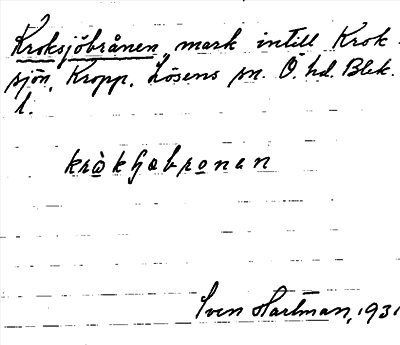 Kroksjöbrånen, mark intill Krok-
sjön, Kropp. Lösens sn. Ö. hd. Blek.
l.
Sven Hartman, 1931